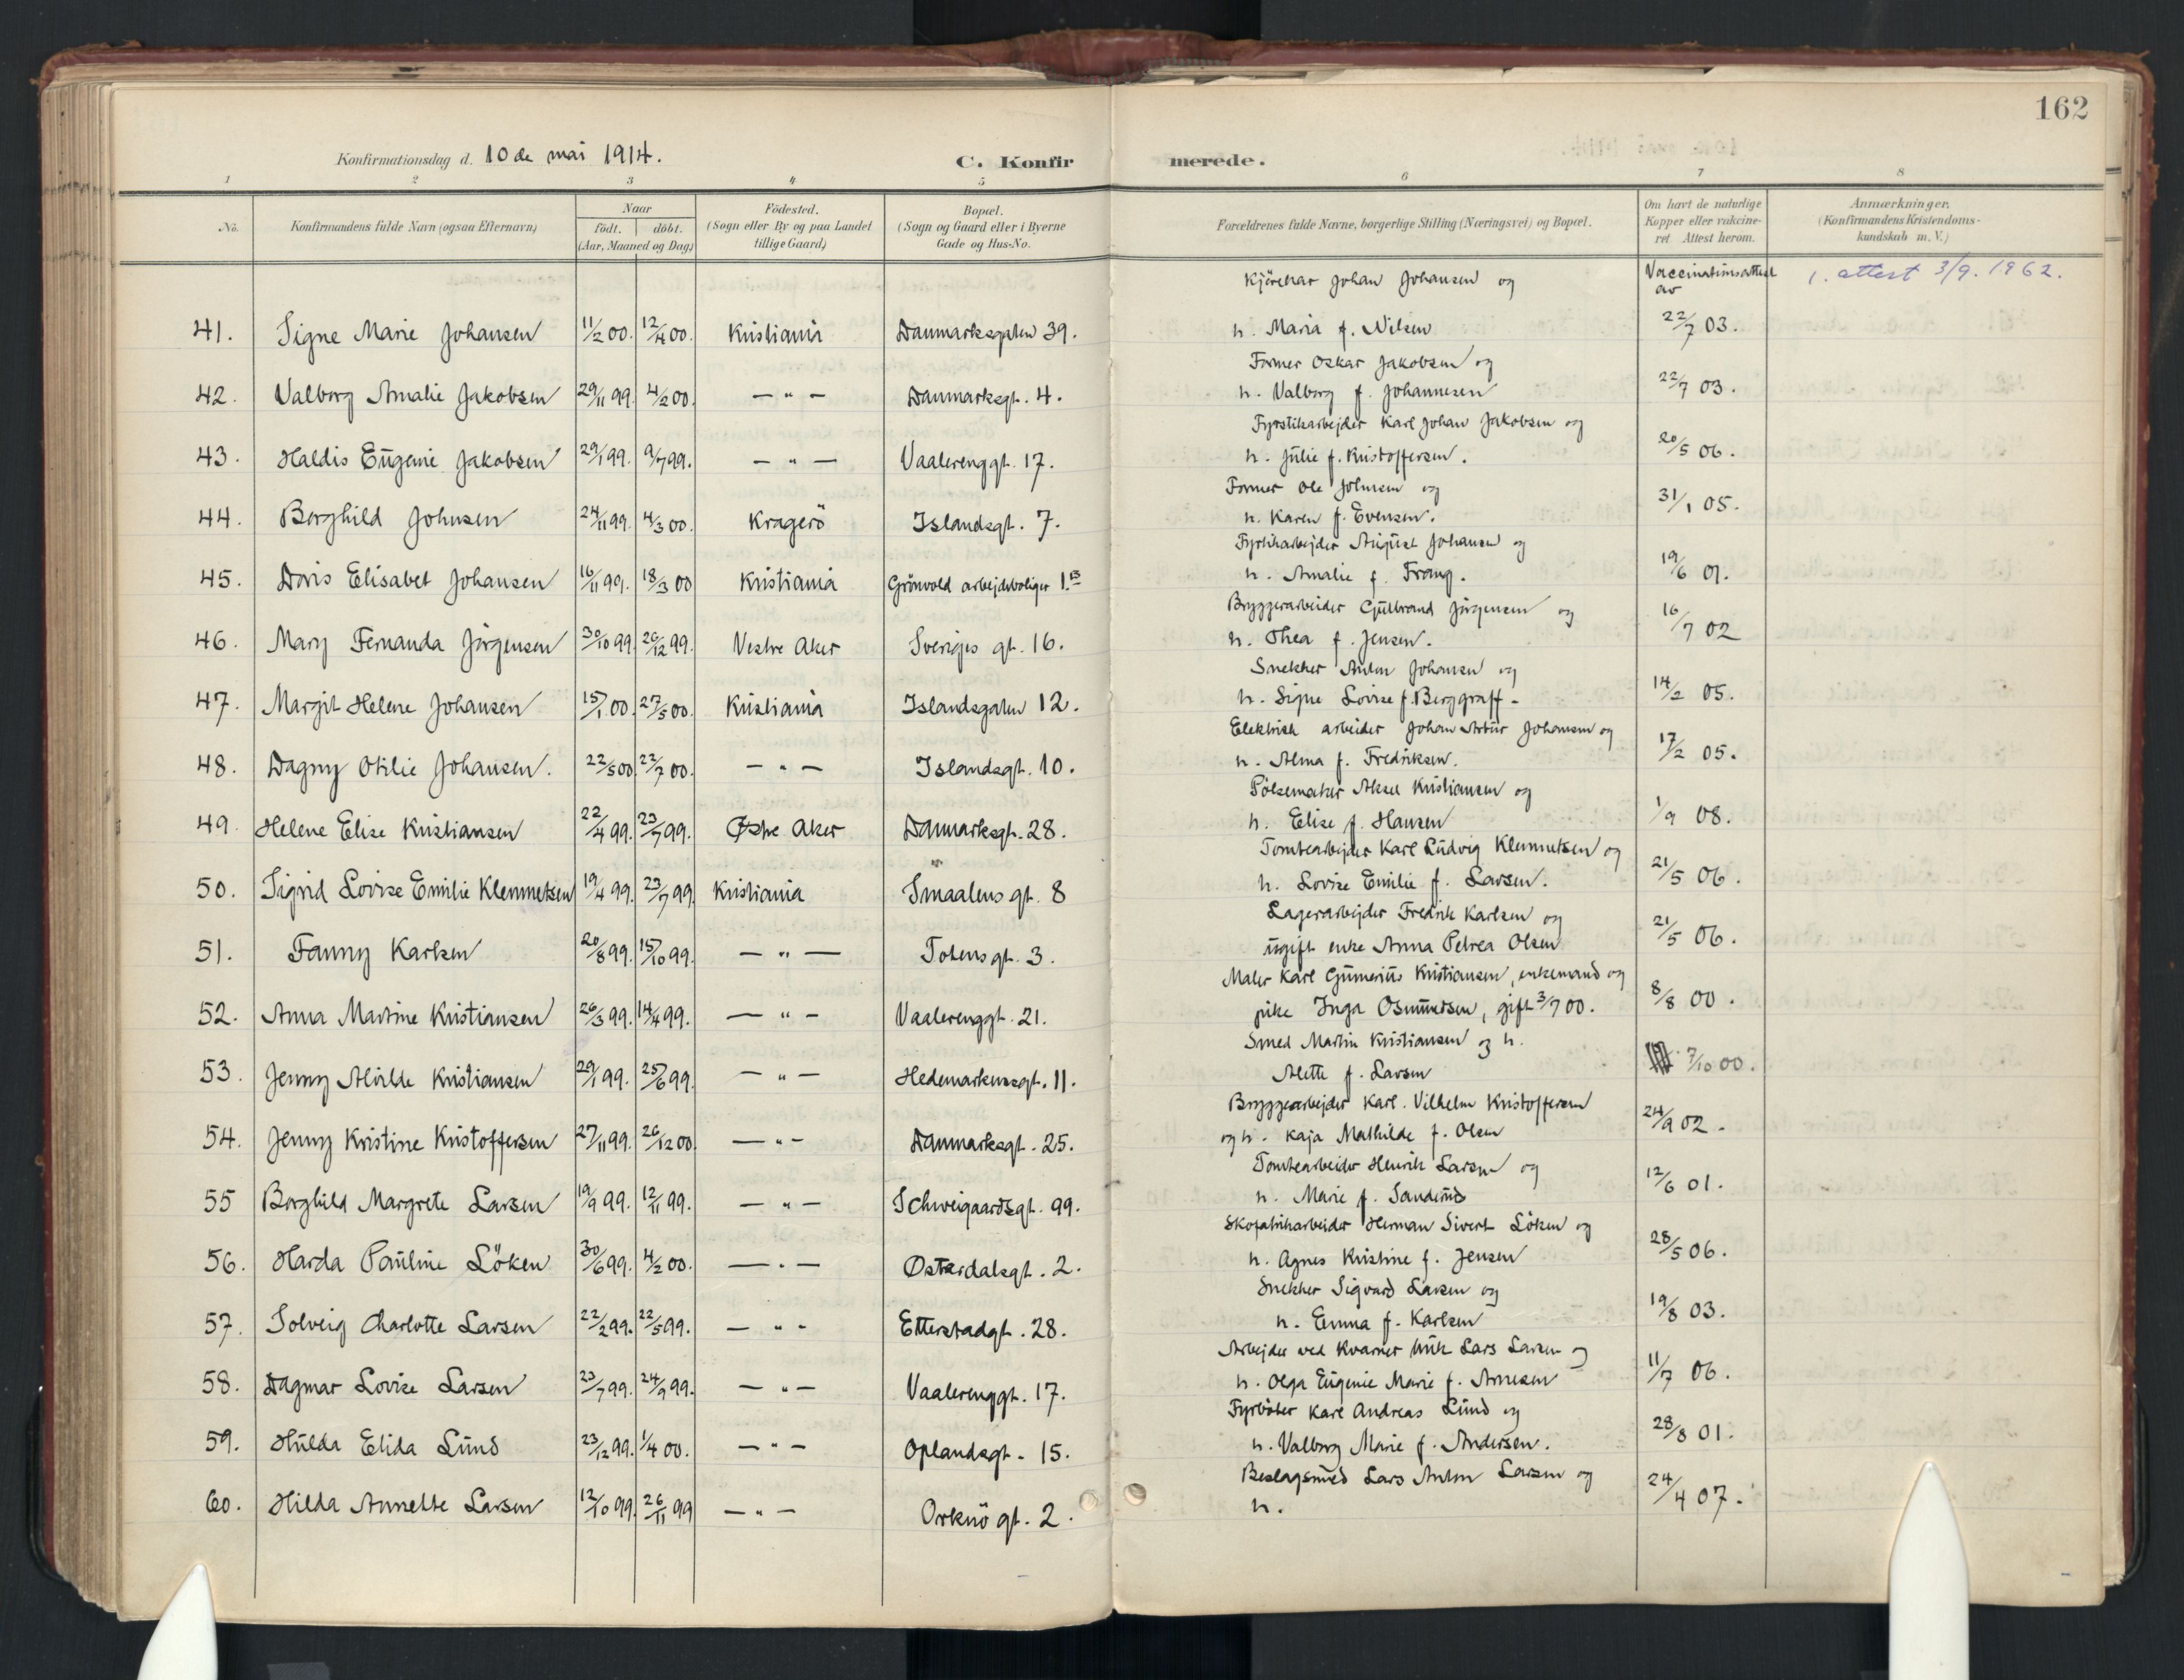 162
Konfirmationsdag d. 10de mai 1914. C. Konfirmerede.
1 2 3 4 5 6 7 8
No.
Konfirmandens fulde Navn (ogsaa Efternavn)
Naar
födt. döbt.
(Aar, Maaned og Dag)
Födested.
(Sogn eller By og paa Landet
tillige Gaard)
Bopæl.
(Sogn og Gaard eller i Byerne
Gade og Hus-No.
Forældrenes fulde Navne, borgerlige Stilling (Næringsvei) og Bopæl.
Om havt de naturlige
Kopper eller vakcine-
ret Attest herom.
Anmærkninger.
(Konfirmandens Kristendoms-
kundskab m. V.)
Kjörekar Johan Johansen og Vaccinationsattest av 1. attest 3/9. 1962.
41. Signe Marie Johansen 11/2 00. 12/4 00. Kristiania Danmarksgaten 39. h. Maria f. Nilsen 22/7 03.
Former Oskar Jakobsen og
42. Valborg Amalie Jakobsen 29/11 99. 4/2 00. — " — Danmarksgt. 4. h. Valborg f. Johannesen 22/7 03.
Fyrstikarbejder Karl Johan Jakobsen og
43. Haldis Eugenie Jakobsen 29/1 99. 9/7 99. — " — Vaalerenggt. 17. h. Julie f. Kristoffersen. 20/5 06.
Former Ole Johnsen og
44. Borghild Johnsen 24/11 99. 4/3 00. Kragerö Islandsgt. 7. h. Karen f. Evensen. 31/1 05.
Fyrstikarbejder August Johansen og
45. Doris Elisabet Johansen 16/11 99. 18/3 00 Kristiania Grönvold arbejderboliger 1. h. Amalie f. Frang. 19/6 01.
Bryggerarbeider Gulbrand Jörgensen og
46. Mary Fernanda Jörgensen 30/10 99. 26/12 99. Vestre Aker Sveriges gt. 16. h. Thea f. Jensen. 16/7 02
Snekker Anton Johansen og
47. Margit Helene Johansen 15/1 00. 27/5 00. Kristiania Islandsgaten 12. h. Signe Lovise f. Berggraff. 14/2 05.
Elektrisk arbeider Johan Artur Johansen og
48. Dagny Otilie Johansen. 22/5 00 22/7 00. — " — Islandsgt. 10. h. Alma f. Fredriksen. 17/2 05.
Pölsemaker Aksel Kristiansen og
49. Helene Elise Kristiansen 22/4 99. 23/7 99. Østre Aker Danmarksgt. 28. h. Elise f. Hansen 1/9 08.
Tomtearbejder Karl Ludvig Klemmetsen og
50. Sigrid Lovise Emilie Klemmetsen 19/4 99. 23/7 99. Kristiania Smaalens gt. 8 h. Lovise Emilie f. Larsen. 21/5 06.
Lagerarbejder Fredrik Karlsen og
51. Fanny Karlsen 20/8 99. 15/10 99. — " — Totens gt. 3. ugift enke Anna Petrea Olsen 21/5 06.
Maler Karl Gunerius Kristiansen, enkemand og
52. Anna Martine Kristiansen 26/3 99. 14/4 99. — " — Vaalerenggt. 21. pike Inga Osmundsen, gift 3/7 00. 8/8 00.
Smed Martin Kristiansen og h.
53. Jenny Alvilde Kristiansen 29/1 99. 25/6 99. — " — Hedemarkensgt. 11. Alette f. Larsen 7/10 00.
Bryggearbejder Karl. Vilhelm Kristoffersen
54. Jenny Kristine Kristoffersen 27/11 99. 26/12 00. — " — Danmarksgt. 25. og h. Kaja Mathilde f. Olsen 24/9 02.
Tomtearbeider Henrik Larsen og
55 Borghild Margrete Larsen 19/9 99. 12/11 99. — " — Schweigaardsgt. 99. h. Marie f. Sanderud 12/6 01.
Skofabrikarbeider Herman Sivert Löken og
56. Harda Pauline Löken 30/6 99. 4/2 00. — " — Österdalsgt. 2. h. Agnes Kristine f. Jensen 28/5 06.
Snekker Sigvard Larsen og
57. Solveig Charlotte Larsen 22/2 99. 22/5 99. — " — Etterstadgt. 28. h. Emma f. Karlsen 19/8 03.
Arbejder ved Kværner bruk Lars Larsen og
58. Dagmar Lovise Larsen 23/7 99. 24/9 99. — " — Vaalerenggt. 17. h. Olga Eugenie Marie f. Arnesen 11/7 06.
Fyrböter Karl Andreas Lund og
59. Hulda Elida Lund 23/12 99. 1/4 00. — " — Oplandsgt. 15. h. Valborg Marie f. Andersen. 28/8 01.
Beslagsmed Lars Anton Larsen og
60. Hilda Annette Larsen 12/10 99. 26/11 99 — " — Orknö gt. 2. h. 24/4 07.